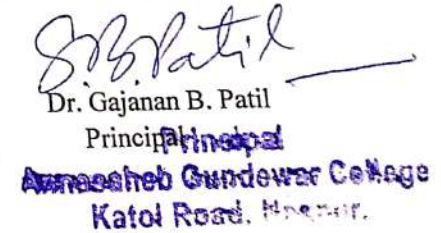 G.B. Patil
Dr. Gajanan B. Patil
Principal
Principal
Annasaheb Gundewar College
Katol Road, Nagpur.